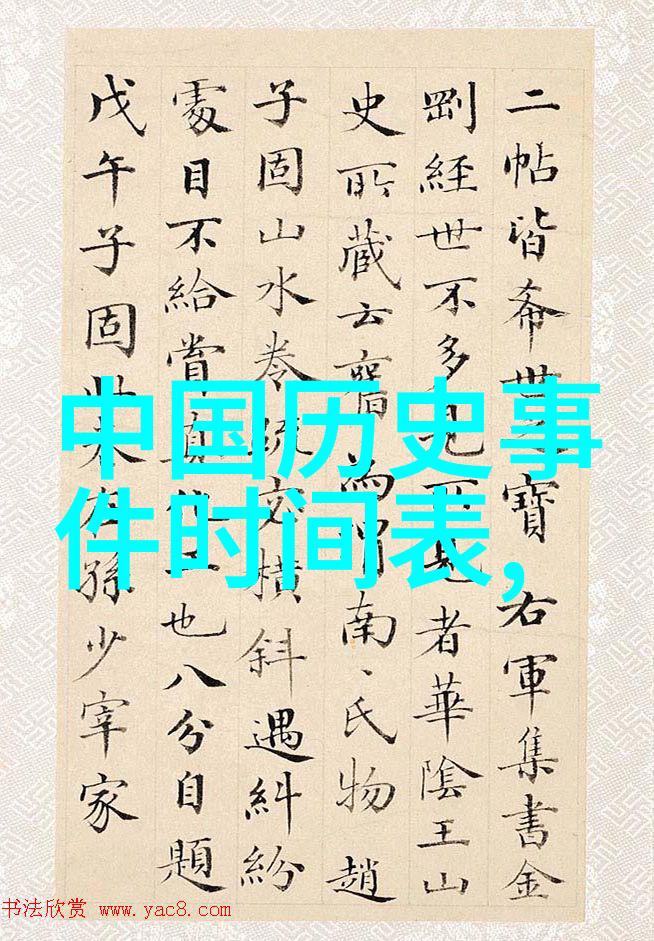 二帖皆希世之寶右軍集書金
剛經世不多見所見者華陰王山
史所藏云舊為南、氏物趙
子固山水卷疏交橫斜遇糾紛
處目不給賞真也八分自題
戊午子固在孫少宰家
中国历史事
件时间表,
书法欣赏 www.yac8.com